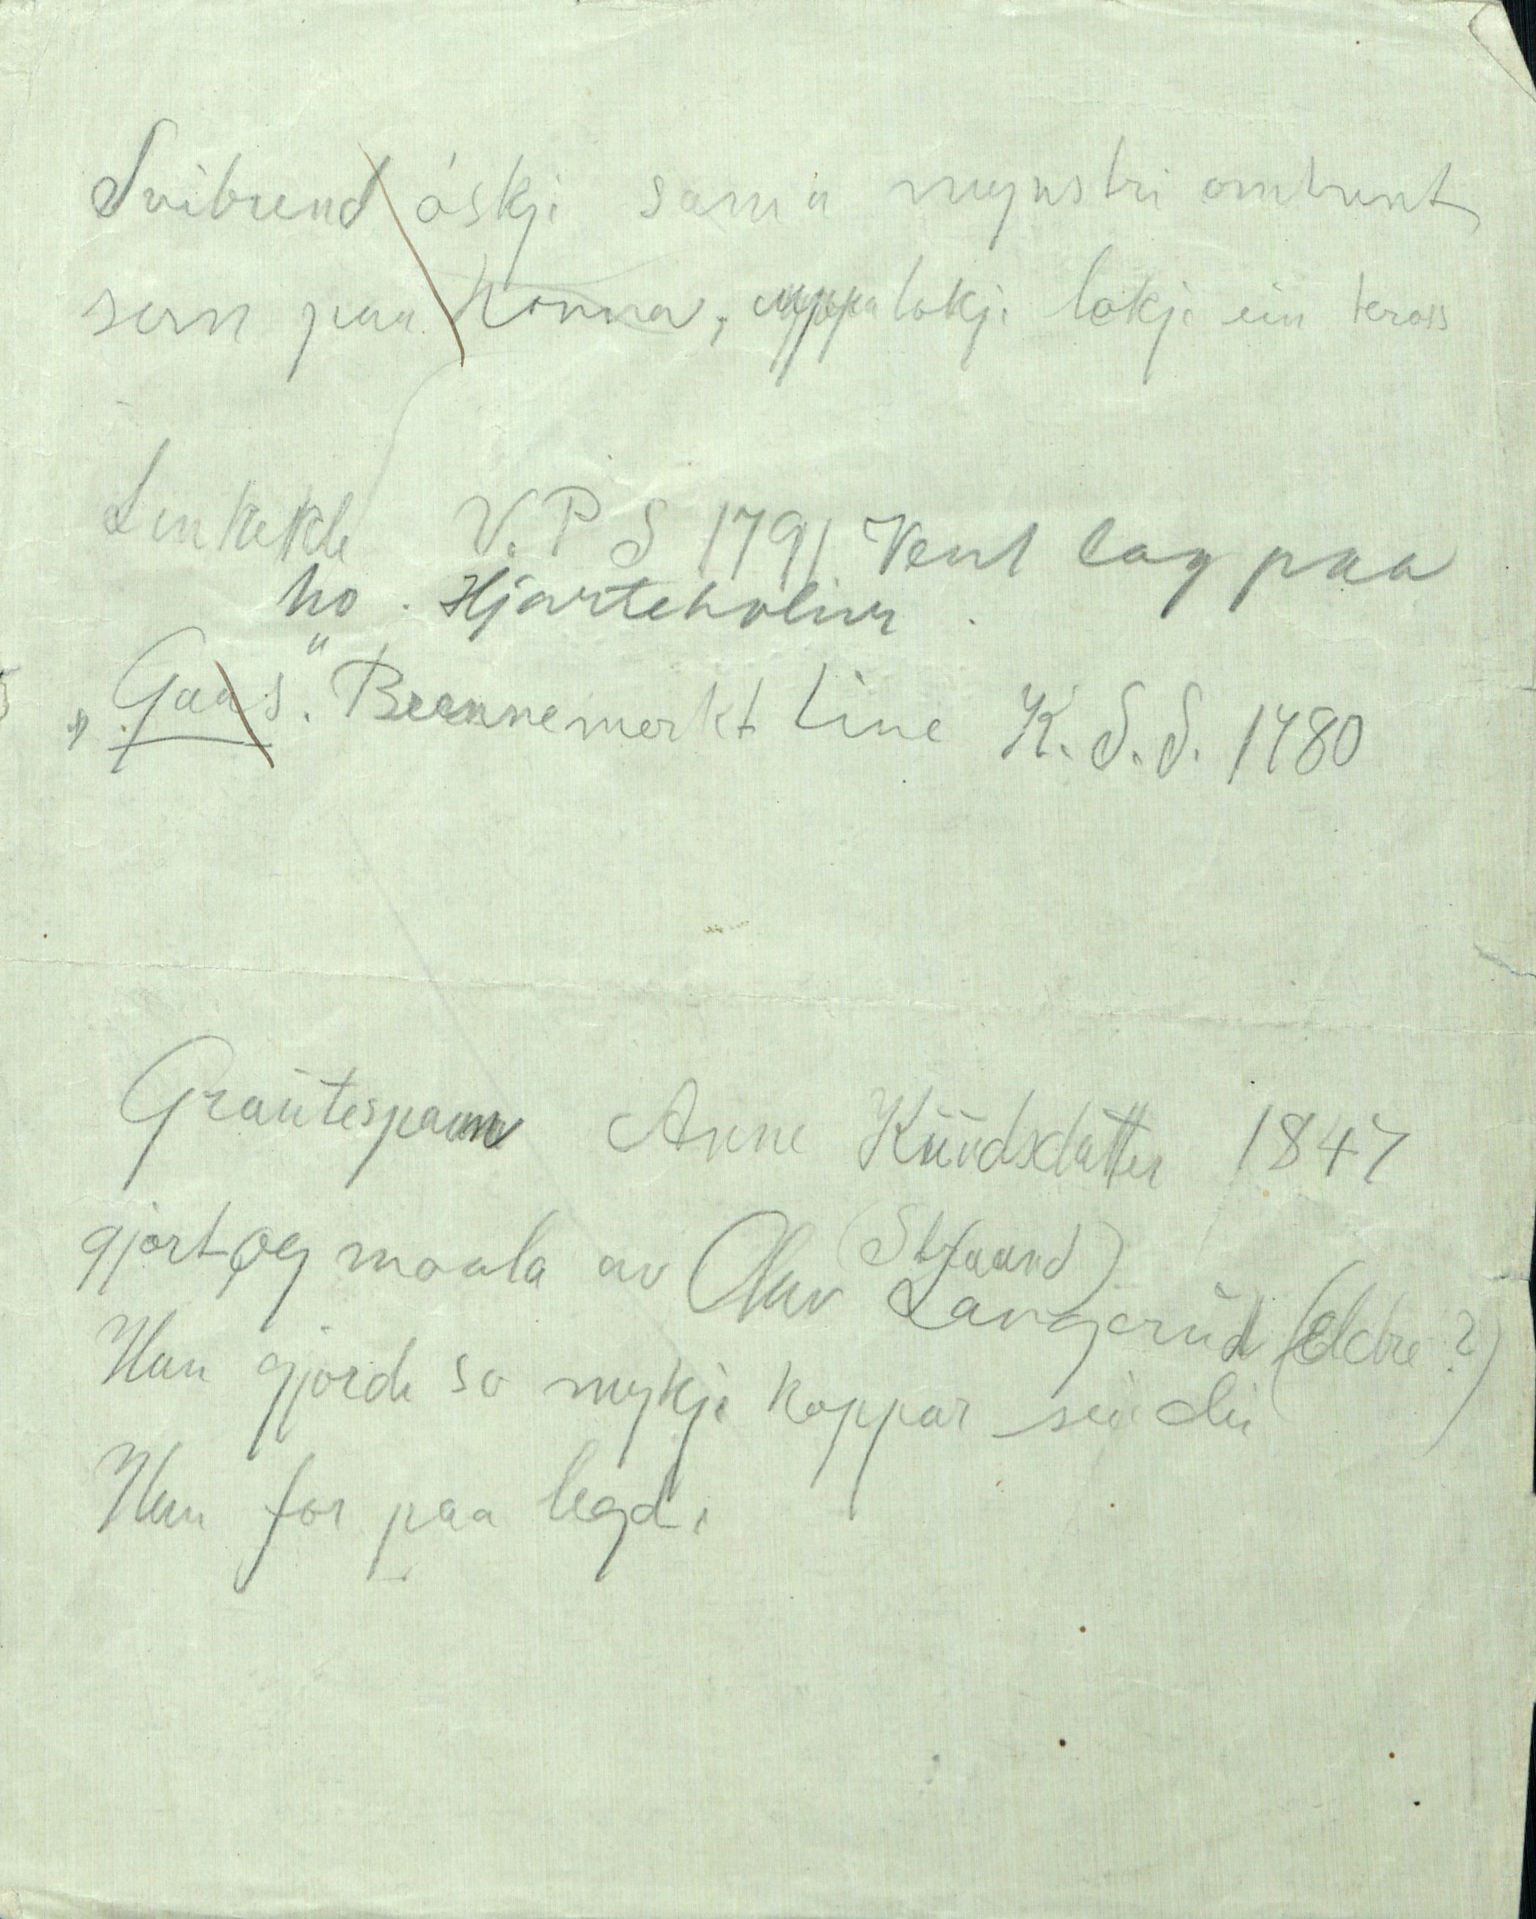 Svibrend óskje sama mynstri omtrent
som paa honna, uppa lokje lokje ein kross
Linkekle V. P S 1791 Vent lag paa
ho. Hjarteholir.
"Gaas". Brennemerkt Line K. S. S. 1780
Grautespann Anne Knudsdatter 1847
(Straand)
gjort og maala av Olav Langerud (Eldre?)
Han gjorde so mykje koppar sia di
Han for paa legd.